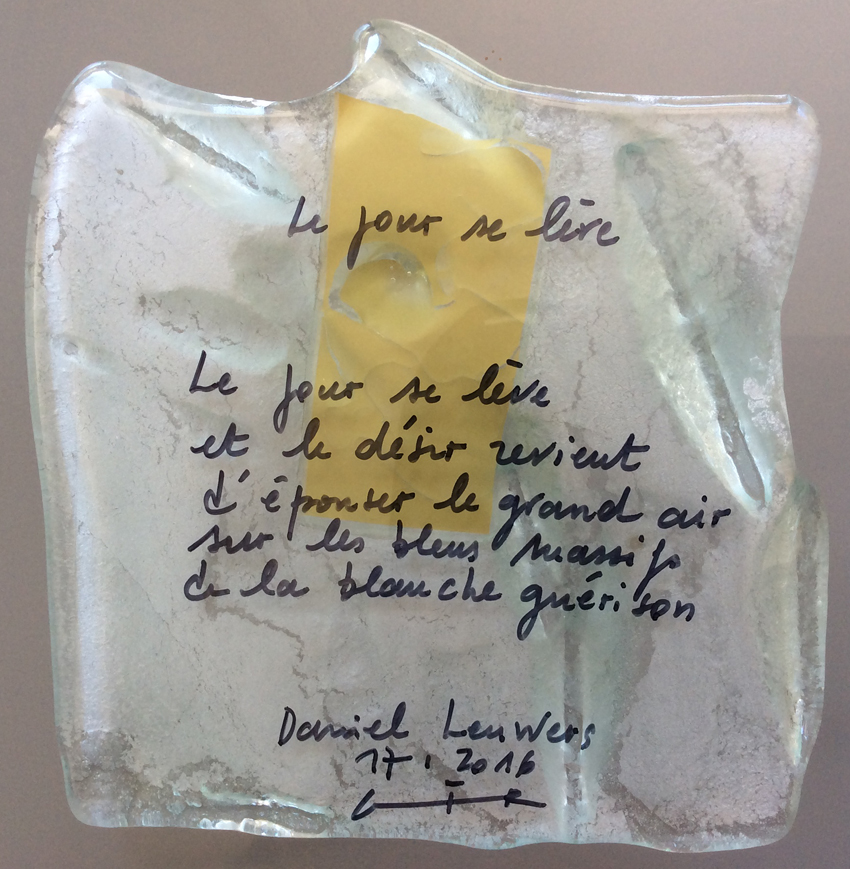 Le jour se lève
Le jour se lève
et le désir revient
d'épouser le grand air
sur les bleus massifs
de la blanche guérison
Daniel Leuwers
17.1.2016